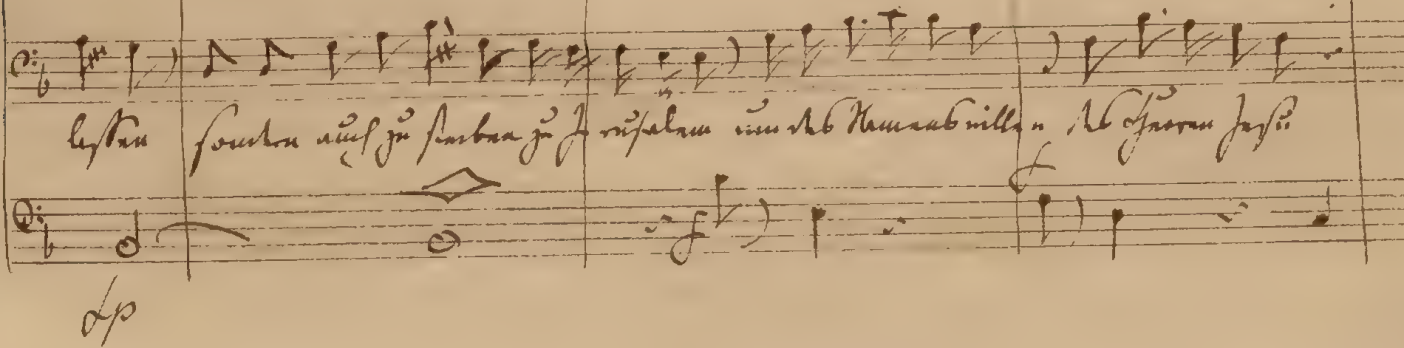 lassen sondern auch zu sterben zu Jerusalem um des Namens willen des Herren Jesu
f
f
fp